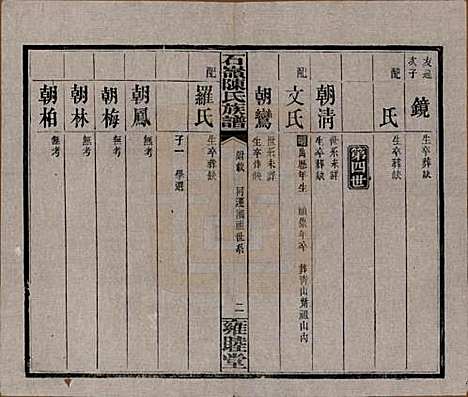 友遜次子
鏡
生卒葬缺
配
氏
生卒葬缺
第四世
朝清
世系未詳
生卒葬缺
配
文氏
明萬歷年生
順康年卒
葬青山葉祖山內
朝鸞
世系未詳
生卒葬缺
石嶺陳氏族譜
附載
同遷
祖世系
二
雍睦堂
配
羅氏
生卒葬缺
子一
學選
朝鳳
無考
朝梅
無考
朝林
無考
朝柏
無考